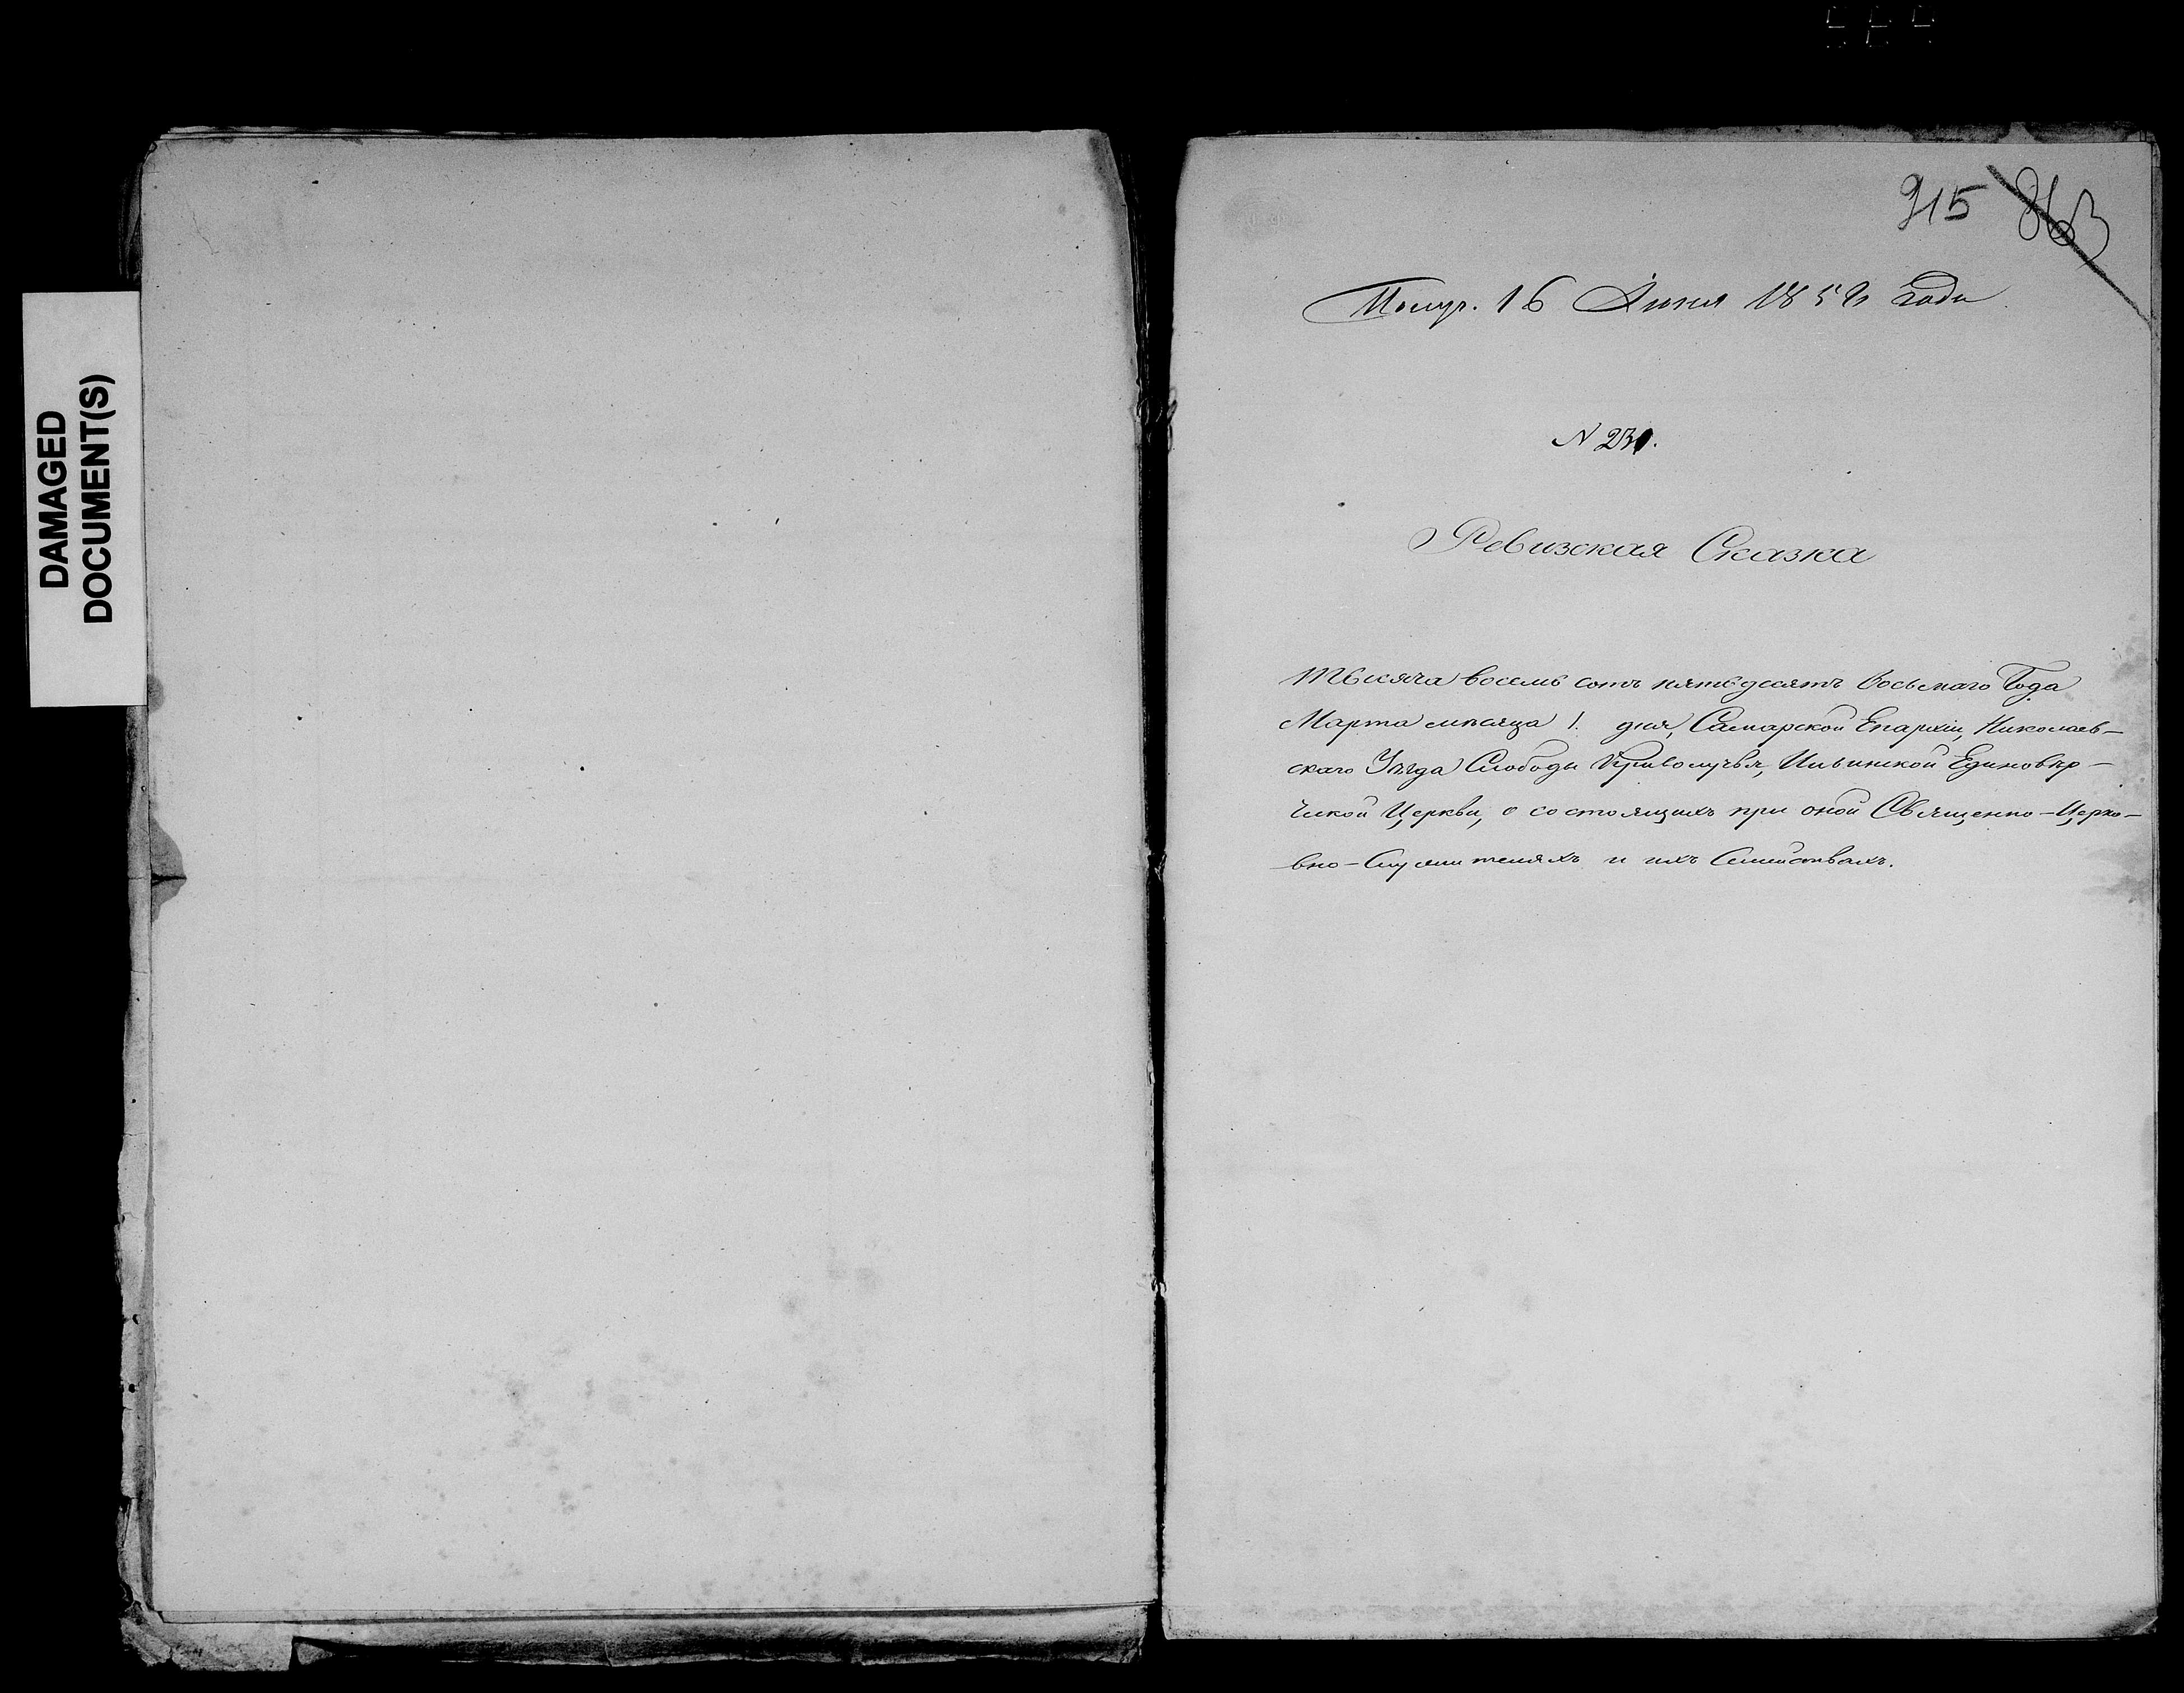 DAMAGED
DOCUMENT(S)
915 863
Получ. 16 Іюня 1858 года
N 230.
Ревизская Сказка
Тысяча восемь сотъ пятьдесятъ восьмаго Года
Марта мѣсяца 1. дня, Самарской Епархіи, Николаев-
скаго Уѣзда Слободы Криволучья, Ильинской Единовѣр-
ческой Церкви, о состоящихъ при оной Священно-Церко-
вно-Служителяхъ и ихъ Семействахъ.